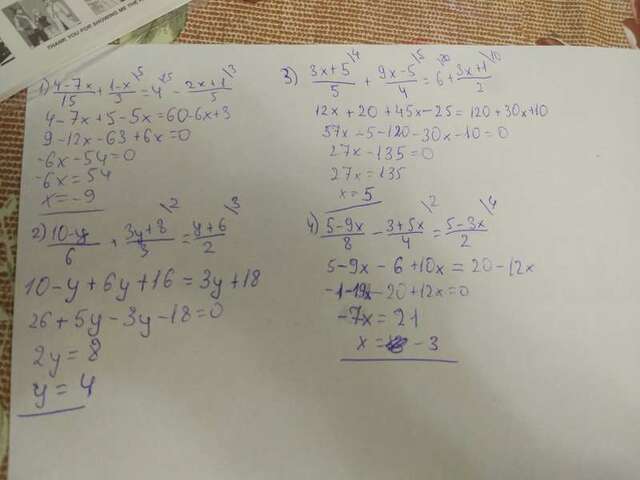 THANK YOU FOR SHOWING ME THE
1) (4-7x)/15 + (1-x)/3 \5 = 4 \15 - (2x+1)/5 \3
4-7x+5-5x=60-6x+3
9-12x-63+6x=0
-6x-54=0
-6x=54
x=-9
2) (10-y)/6 + (3y+8)/3 \2 = (y+6)/2 \3
10-y+6y+16=3y+18
26+5y-3y-18=0
2y=8
y=4
3) (3x+5)/5 \4 + (9x-5)/4 \5 = 6 \20 + (3x+1)/2 \10
12x+20+45x-25=120+30x+10
57x-5-120-30x-10=0
27x-135=0
27x=135
x=5
4) (5-9x)/8 - (3+5x)/4 \2 = (5-3x)/2 \4
5-9x-6+10x=20-12x
-20+12x=0
-7x=21
x= -3